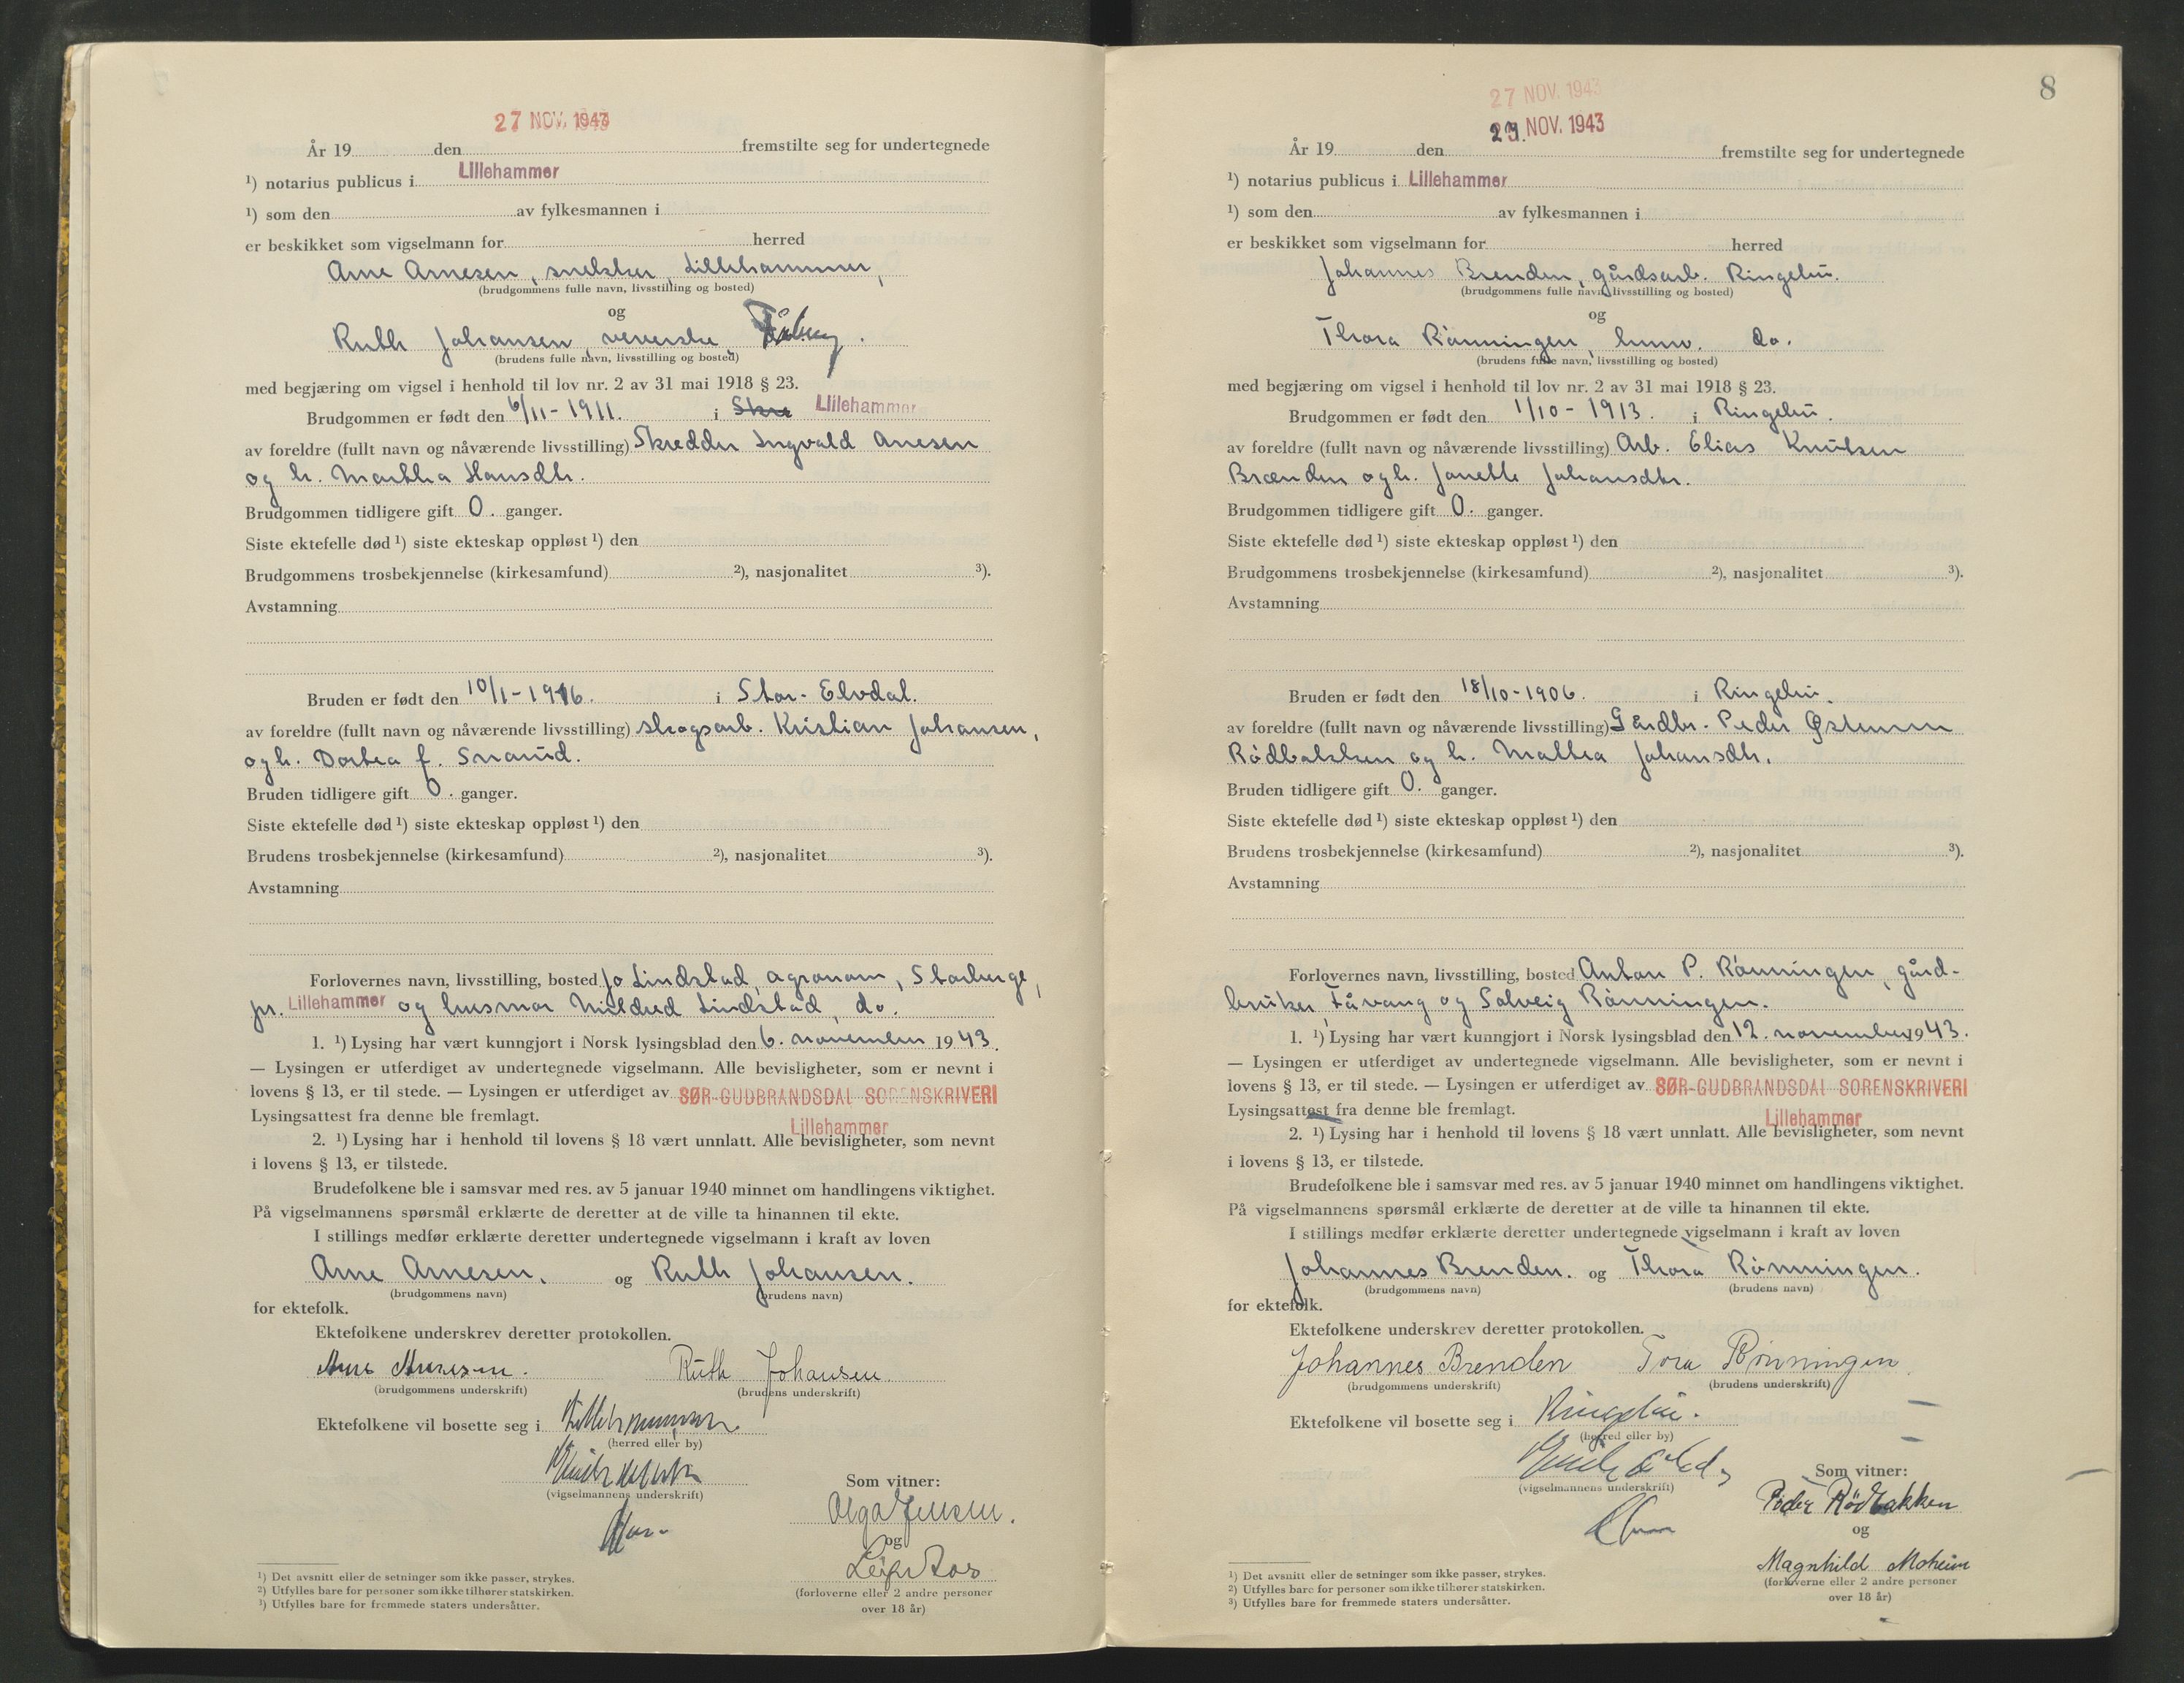 27 NOV. 1943
År 19 den fremstilte seg for undertegnede
¹) notarius publicus i Lillehammer
¹) som den av fylkesmannen i
er beskikket som vigselmann for herred
Arne Arnesen, snekker, Lillehammer,
(brudgommens fulle navn, livsstilling og bosted)
og
Ruth Johansen, veverske, Fåberg.
(brudens fulle navn, livsstilling og bosted)
med begjæring om vigsel i henhold til lov nr. 2 av 31 mai 1918 § 23.
Brudgommen er født den 6/11-1911. i Lillehammer
av foreldre (fullt navn og nåværende livsstilling) Skredder Ingvald Arnesen
og h. Martha Hansdtr.
Brudgommen tidligere gift 0. ganger.
Siste ektefelle død ¹) siste ekteskap oppløst ¹) den
Brudgommens trosbekjennelse (kirkesamfund) ²), nasjonalitet ³).
Avstamning
Bruden er født den 10/1-1916. i Stor-Elvdal.
av foreldre (fullt navn og nåværende livsstilling) skogsarb. Kristian Johansen,
og h. Dortea f. Snarud.
Bruden tidligere gift 0. ganger.
Siste ektefelle død ¹) siste ekteskap oppløst ¹) den
Brudens trosbekjennelse (kirkesamfund) ²), nasjonalitet ³).
Avstamning
Forlovernes navn, livsstilling, bosted Jo Lindstad, agronom, Storberget,
pr. Lillehammer og husmor Mildred Lindstad, do.
1. ¹) Lysing har vært kunngjort i Norsk lysingsblad den 6. november 1943.
— Lysingen er utferdiget av undertegnede vigselmann. Alle bevisligheter, som er nevnt i
lovens § 13, er til stede. — Lysingen er utferdiget av SØR-GUDBRANDSDAL SORENSKRIVERI
Lysingsattest fra denne ble fremlagt.
Lillehammer
2. ¹) Lysing har i henhold til lovens § 18 vært unnlatt. Alle bevisligheter, som nevnt
i lovens § 13, er tilstede.
Brudefolkene ble i samsvar med res. av 5 januar 1940 minnet om handlingens viktighet.
På vigselmannens spørsmål erklærte de deretter at de ville ta hinannen til ekte.
I stillings medfør erklærte deretter undertegnede vigselmann i kraft av loven
Arne Arnesen. og Ruth Johansen.
(brudgommens navn) (brudens navn)
for ektefolk.
Ektefolkene underskrev deretter protokollen.
Arne Arnesen. Ruth Johansen
(brudgommens underskrift) (brudens underskrift)
Ektefolkene vil bosette seg i Lillehammer
(herred eller by)
(vigselmannens underskrift)
Som vitner:
Olga Jensen.
og
Leif
(forloverne eller 2 andre personer
over 18 år)
¹) Det avsnitt eller de setninger som ikke passer, strykes.
²) Utfylles bare for personer som ikke tilhører statskirken.
³) Utfylles bare for fremmede staters undersåtter.
8
27 NOV. 1943
29. NOV. 1943
År 19 den fremstilte seg for undertegnede
¹) notarius publicus i Lillehammer
¹) som den av fylkesmannen i
er beskikket som vigselmann for herred
Johannes Brenden, gårdsarb. Ringebu.
(brudgommens fulle navn, livsstilling og bosted)
og
Thora Rønningen, husv. do.
(brudens fulle navn, livsstilling og bosted)
med begjæring om vigsel i henhold til lov nr. 2 av 31 mai 1918 § 23.
Brudgommen er født den 1/10-1913. i Ringebu.
av foreldre (fullt navn og nåværende livsstilling) Arb. Elias Knutsen
Brænden og h. Janette Johansdtr.
Brudgommen tidligere gift 0. ganger.
Siste ektefelle død ¹) siste ekteskap oppløst ¹) den
Brudgommens trosbekjennelse (kirkesamfund) ²), nasjonalitet ³).
Avstamning
Bruden er født den 18/10-1906. i Ringebu.
av foreldre (fullt navn og nåværende livsstilling) Gårdbr. Peder Østensen
Rødbakken og h. Mathea Johansdtr.
Bruden tidligere gift 0. ganger.
Siste ektefelle død ¹) siste ekteskap oppløst ¹) den
Brudens trosbekjennelse (kirkesamfund) ²), nasjonalitet ³).
Avstamning
Forlovernes navn, livsstilling, bosted Anton P. Rønningen, gård-
bruker, Fåvang og Solveig Rønningen.
1. ¹) Lysing har vært kunngjort i Norsk lysingsblad den 12. november 1943.
— Lysingen er utferdiget av undertegnede vigselmann. Alle bevisligheter, som er nevnt i
lovens § 13, er til stede. — Lysingen er utferdiget av SØR-GUDBRANDSDAL SORENSKRIVERI
Lysingsattest fra denne ble fremlagt.
Lillehammer
2. ¹) Lysing har i henhold til lovens § 18 vært unnlatt. Alle bevisligheter, som nevnt
i lovens § 13, er tilstede.
Brudefolkene ble i samsvar med res. av 5 januar 1940 minnet om handlingens viktighet.
På vigselmannens spørsmål erklærte de deretter at de ville ta hinannen til ekte.
I stillings medfør erklærte deretter undertegnede vigselmann i kraft av loven
Johannes Brenden. og Thora Rønningen.
(brudgommens navn) (brudens navn)
for ektefolk.
Ektefolkene underskrev deretter protokollen.
Johannes Brenden Tora Rønningen
(brudgommens underskrift) (brudens underskrift)
Ektefolkene vil bosette seg i Ringebu.
(herred eller by)
(vigselmannens underskrift)
Som vitner:
Peder Rødbakken
og
Magnhild Moheim
(forloverne eller 2 andre personer
over 18 år)
¹) Det avsnitt eller de setninger som ikke passer, strykes.
²) Utfylles bare for personer som ikke tilhører statskirken.
³) Utfylles bare for fremmede staters undersåtter.